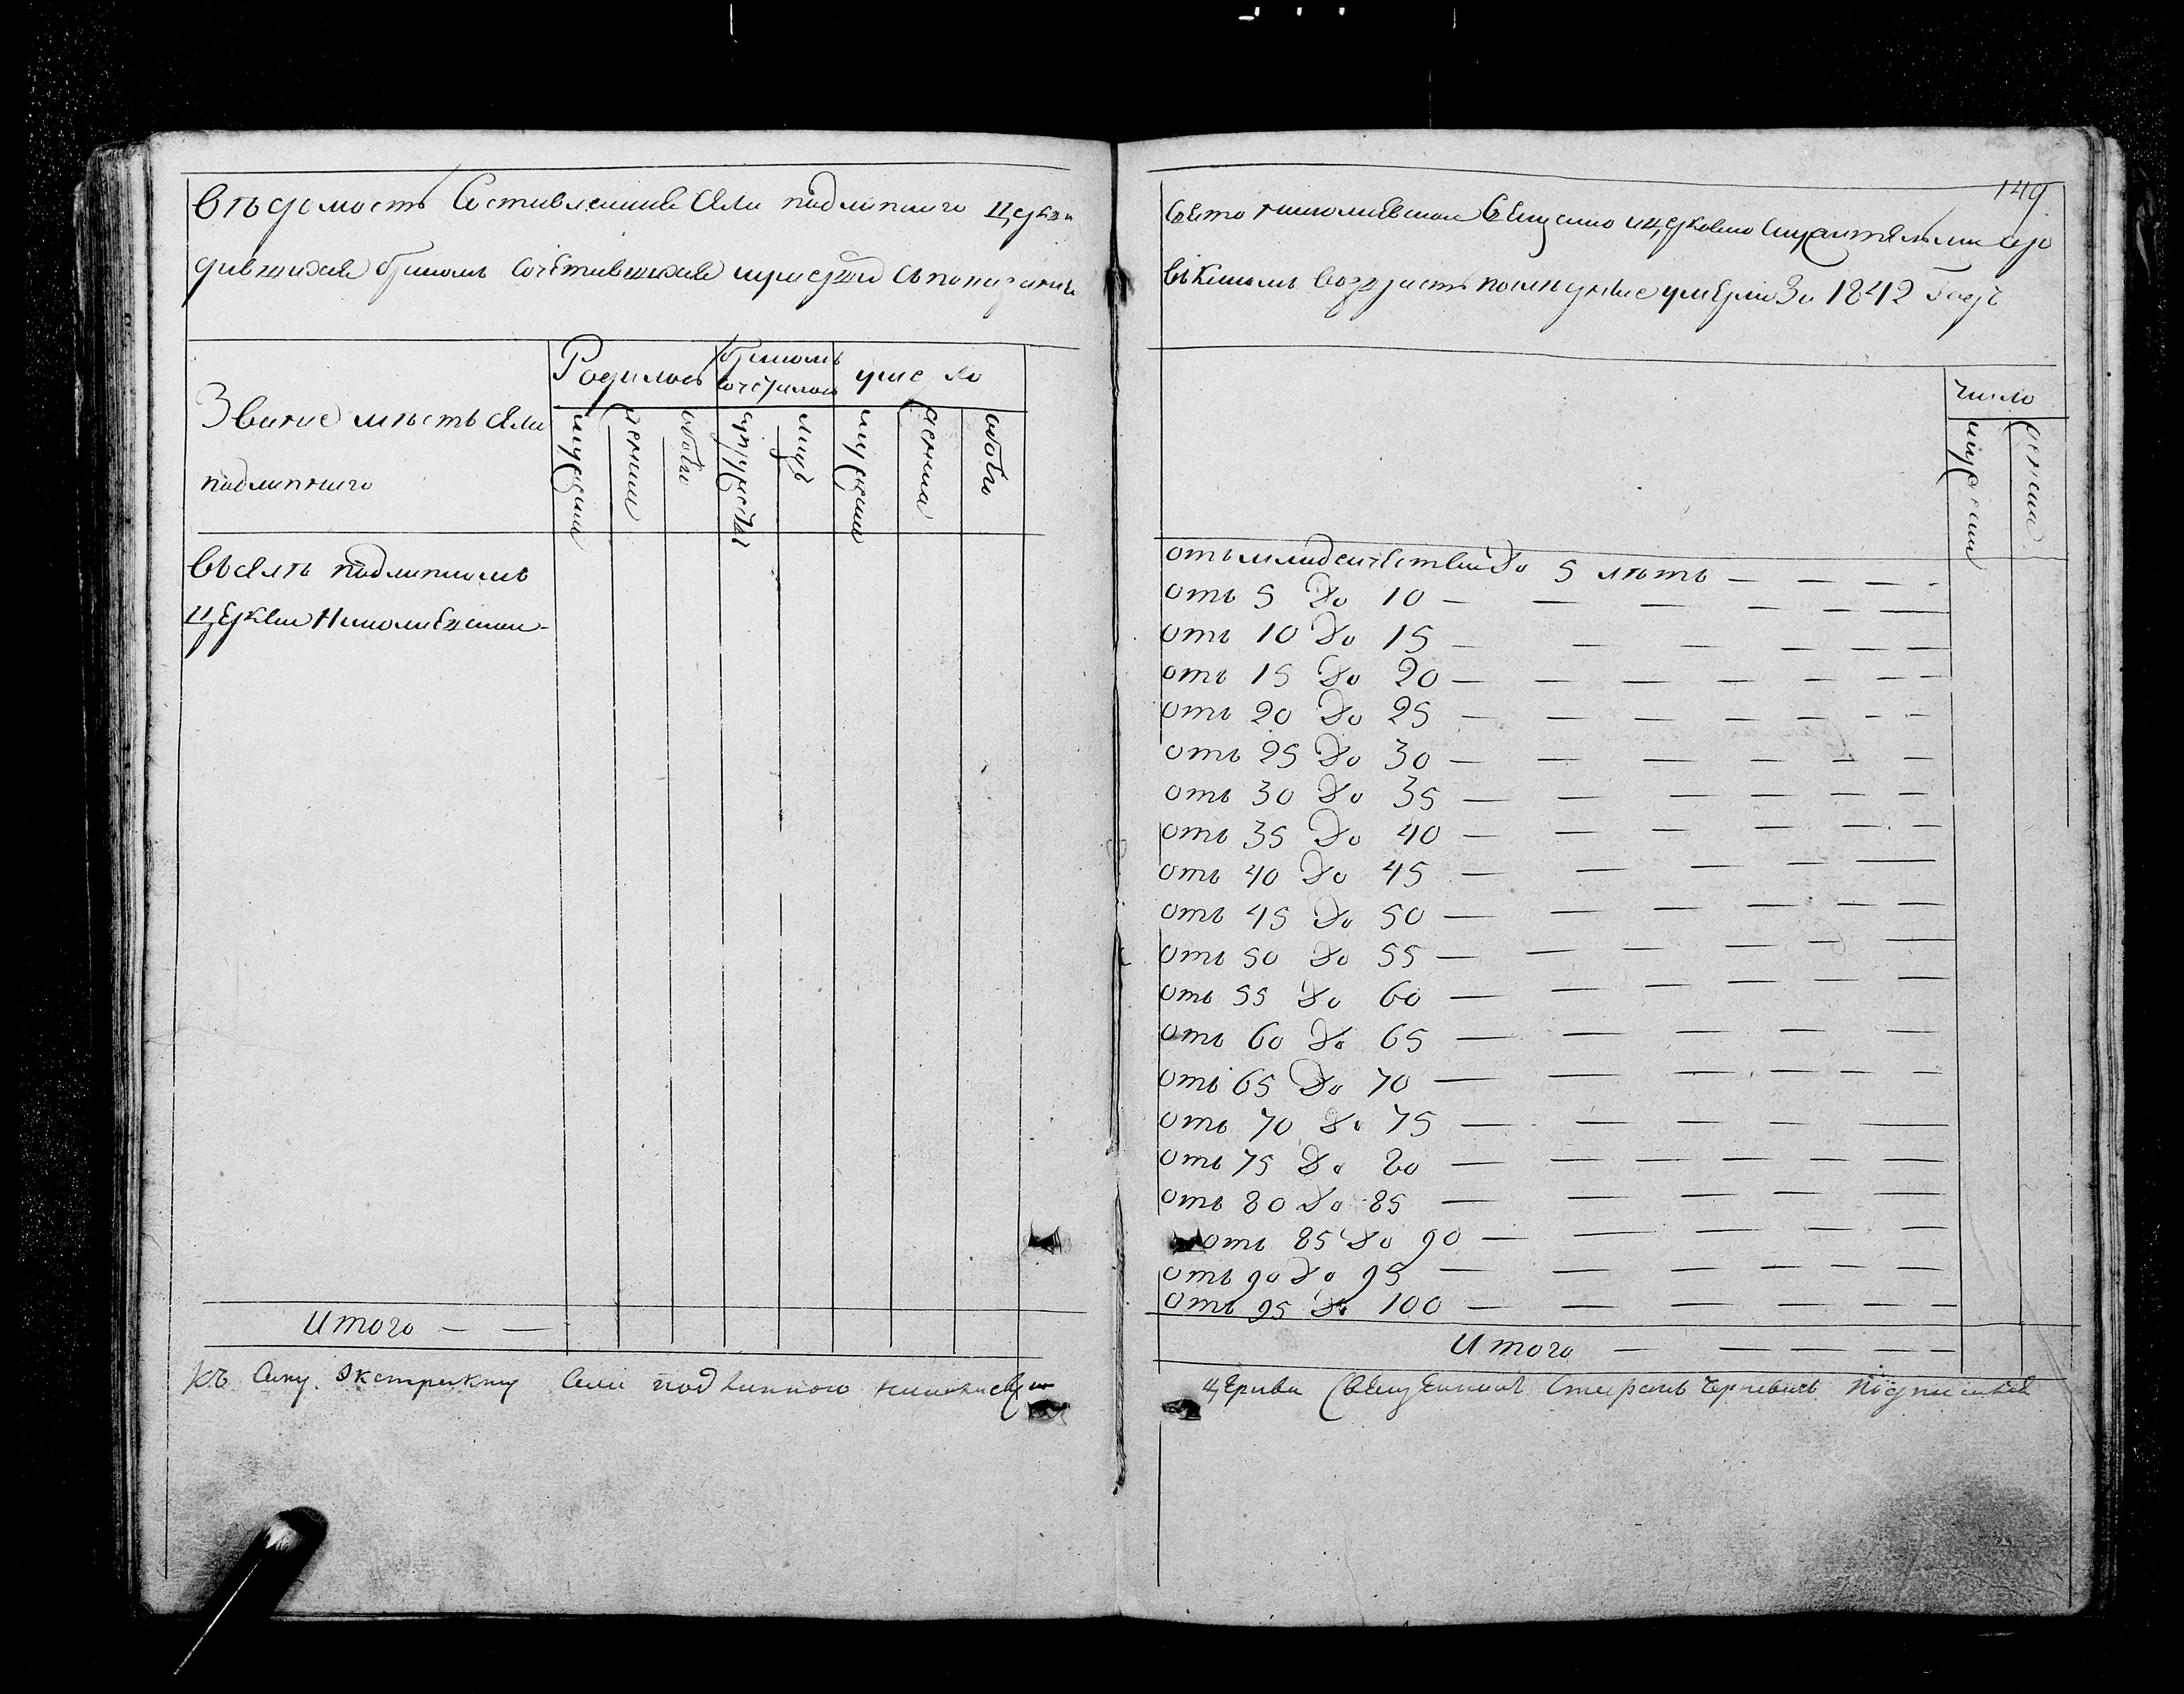 149
Вѣдомость Составленная Села подлипного церкви
Свято николаевской Священно и церковно служительми о ро
дившихся бракомъ сочетавшихся и умершихъ съ показаніемъ
въ какомъ возрастѣ полъ умерли За 1842 Годъ
Званіе мѣстъ Села
подлипного
Родилось
бракомъ
сочеталось
умерло
мужска
женска
обоего
супружествъ
лицъ
мужска
женска
обоего
Въ Селѣ подлипномъ
Церкви Николаевской
Итого — —
Къ Сему Экстракту Села подлипного николаевской
число
мужска
женска
отъ младенчества до 5 лѣтъ — — — -
отъ 5 до 10 — — — — — —
отъ 10 до 15 — — — — — —
отъ 15 до 20 — — — — — — —
отъ 20 до 25 — — — — — — —
отъ 25 до 30 — — — — — —
отъ 30 до 35 — — — — — —
отъ 35 до 40 — — — — — —
отъ 40 до 45 — — — — —
отъ 45 до 50 — — — — — —
отъ 50 до 55 — — — — — —
отъ 55 до 60 — — — — — —
отъ 60 до 65 — — — — —
отъ 65 до 70 — — — — — —
отъ 70 до 75 — — — — —
отъ 75 до 80 — — — — — —
отъ 80 до 85 — — — — —
отъ 85 до 90 — — — — —
отъ 90 до 95 — — — — — —
отъ 95 до 100 — — — — — —
Итого — — — — — —
церкви Священникъ Стефанъ подписался